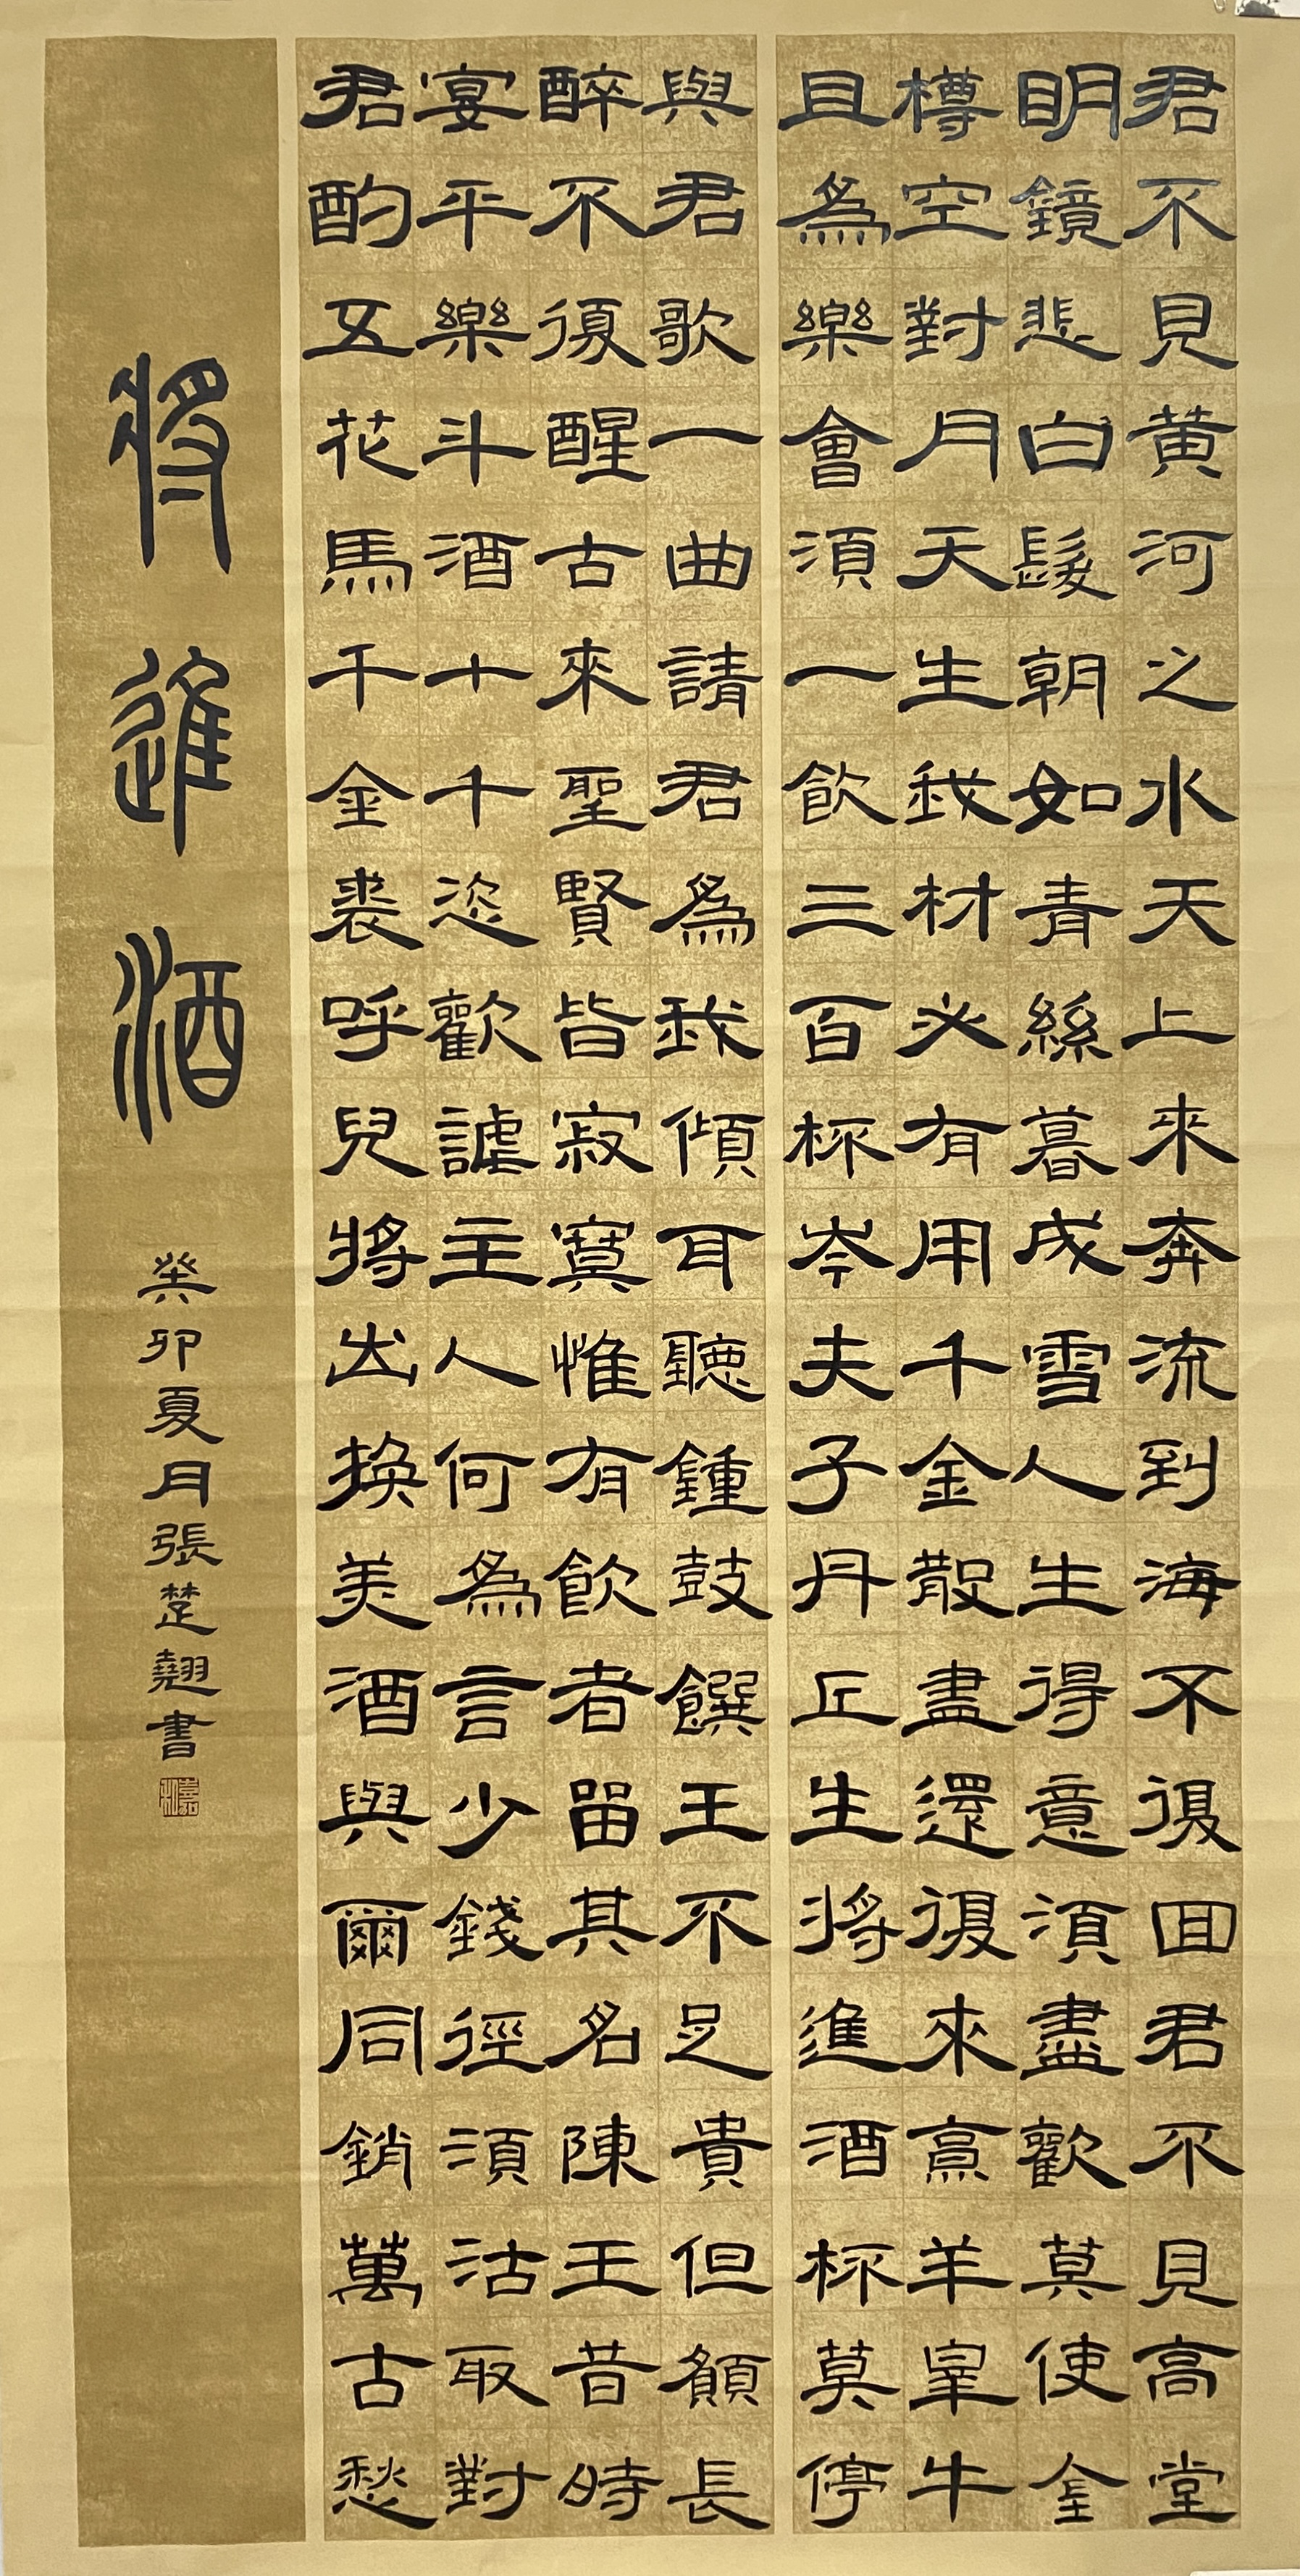 君不見黄河之水天上來奔流到海不復回君不見高堂
明鏡悲白髮朝如青絲暮成雪人生得意須盡歡莫使金
樽空對月天生我材必有用千金散盡還復來烹羊宰牛
且為樂會須一飲三百杯岑夫子丹丘生將進酒杯莫停
與君歌一曲請君為我傾耳聽鍾鼓饌玉不足貴但願長
醉不復醒古來聖賢皆寂寞惟有飲者留其名陳王昔時
宴平樂斗酒十千恣歡謔主人何為言少錢徑須沽取對
君酌五花馬千金裘呼兒將出換美酒與爾同銷萬古愁
將進酒
癸卯夏月張楚翹書